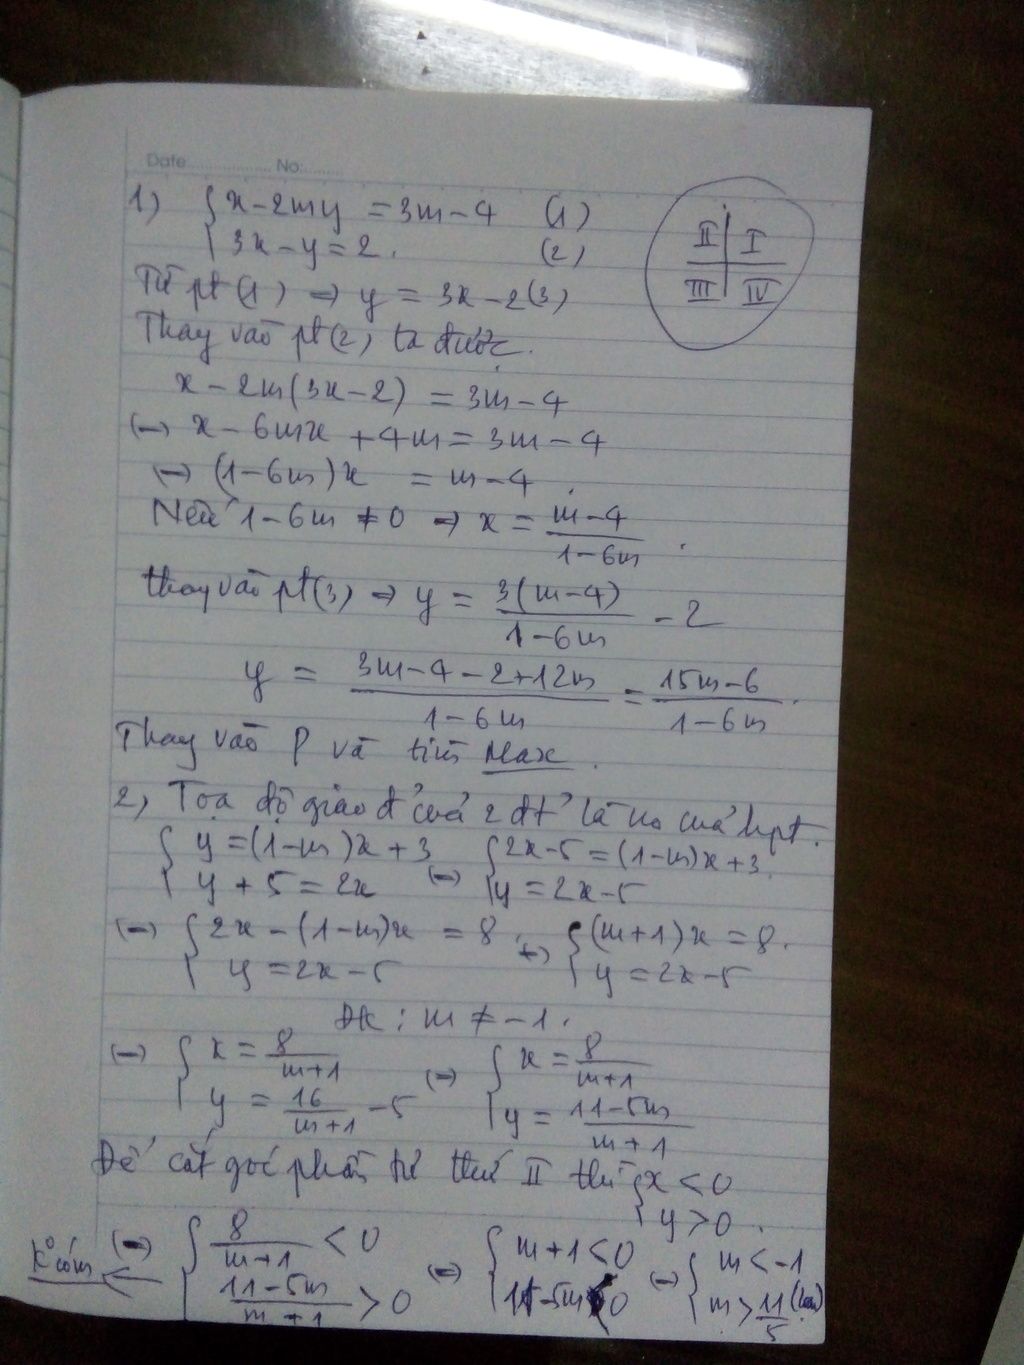 Date............... No:........
1) { x - 2my = 3m - 4 (1)
3x - y = 2. (2)
II I
III IV
Từ pt(1) => y = 3x - 2 (3)
Thay vào pt(2) ta được.
x - 2m(3x - 2) = 3m - 4
<=> x - 6mx + 4m = 3m - 4
<=> (1 - 6m)x = m - 4.
Nếu 1 - 6m ≠ 0 => x = (m - 4)/(1 - 6m).
thay vào pt(3) => y = 3(m - 4)/(1 - 6m) - 2
y = (3m - 4 - 2 + 12m)/(1 - 6m) = (15m - 6)/(1 - 6m).
Thay vào P và tìm Max.
2, Tọa độ giao đ' của 2 đt' là no của hpt.
{ y = (1 - m)x + 3 { 2x - 5 = (1 - m)x + 3.
y + 5 = 2x <=> y = 2x - 5
<=> { 2x - (1 - m)x = 8. <=> { (m + 1)x = 8.
y = 2x - 5 y = 2x - 5
ĐK: m ≠ -1.
<=> { x = 8/(m + 1) { x = 8/(m + 1)
y = 16/(m + 1) - 5 <=> y = (11 - 5m)/(m + 1)
Để cắt góc phần tư thứ II thì { x < 0
y > 0.
<=> { 8/(m + 1) < 0 <=> { m + 1 < 0 <=> { m < -1
(11 - 5m)/(m + 1) > 0 11 - 5m < 0 m > 11/5 (loại)
K° có m <=